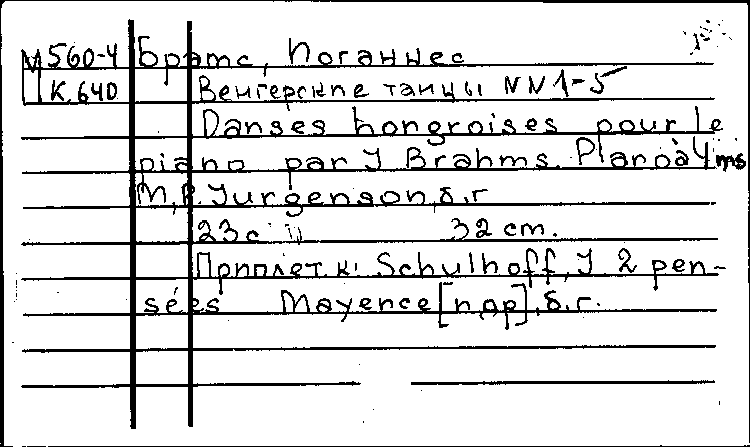 М560-4 Брамс, Иоганнес
К.640 Венгерские танцы NN1-5
Danses hongroises pour le
piano par J Brahms. Piano à 4 ms
М, P. Jurgenson, б.г
23с 32 cm.
Приплет. к: Schulhoff, J 2 pen-
sées Mayence [и др], б.г.